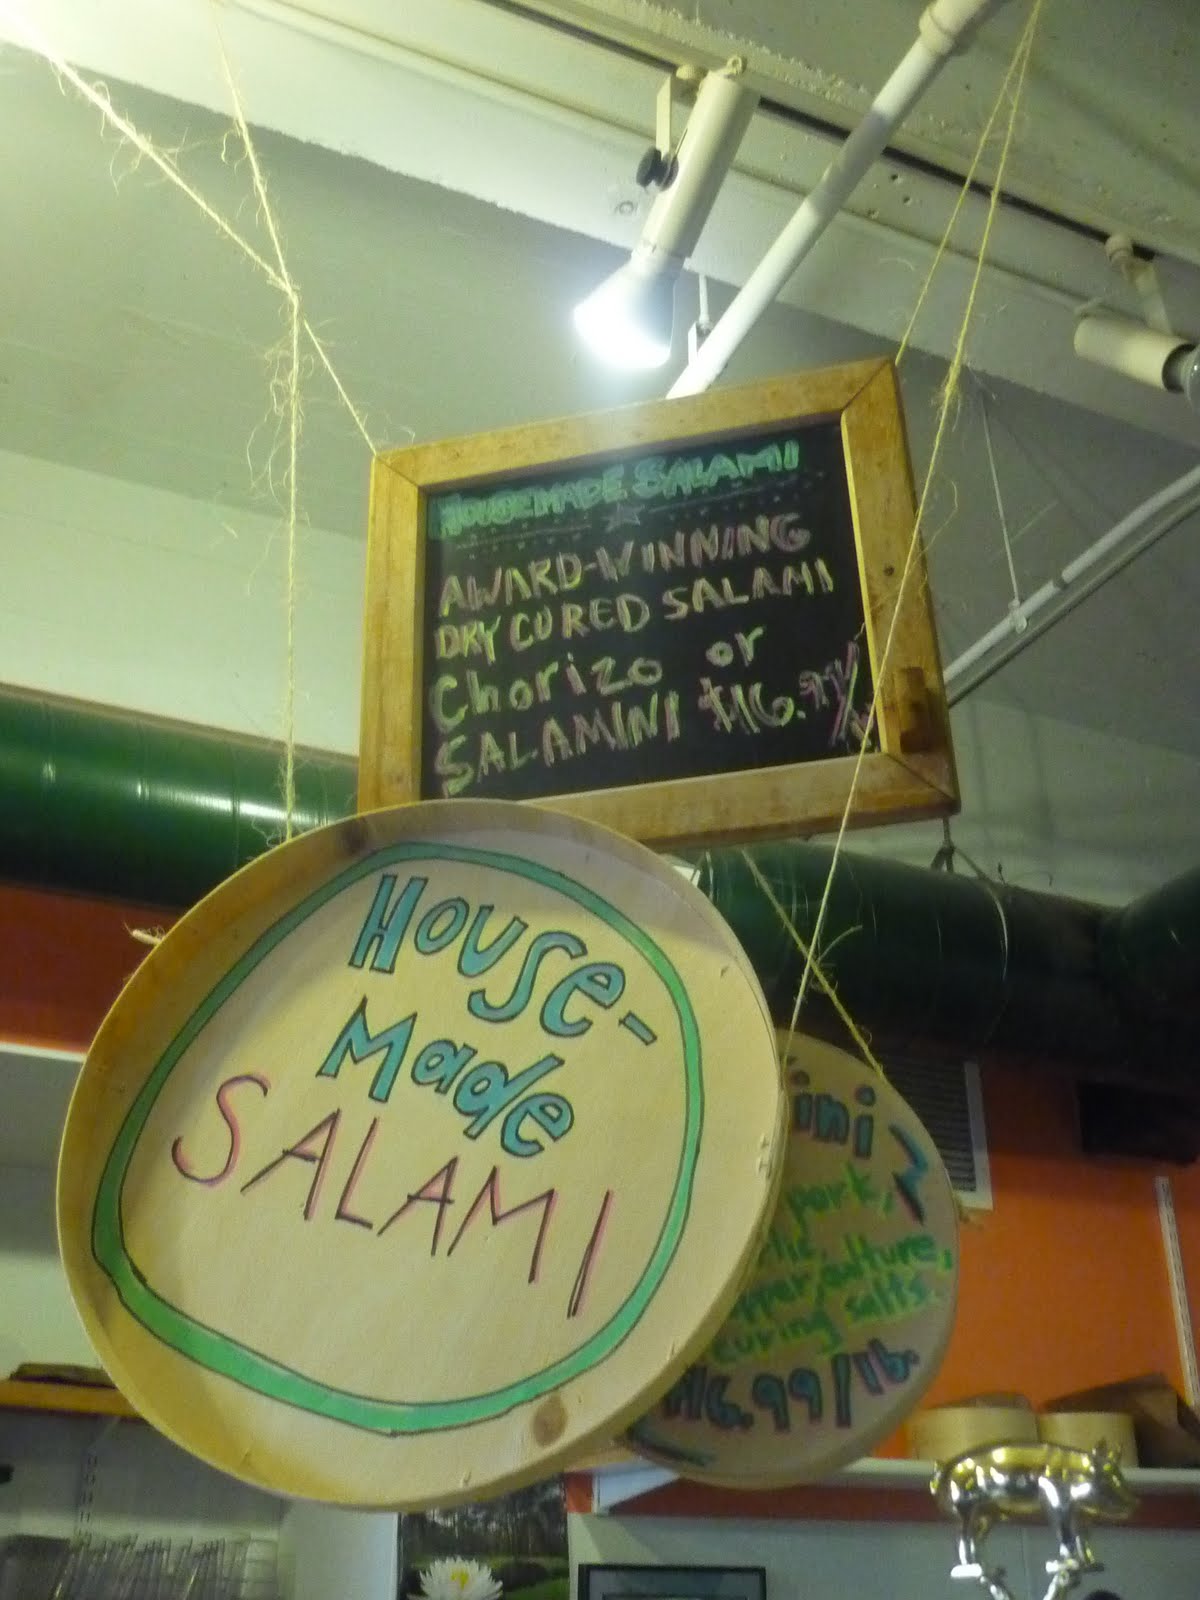 HOUSEMADE SALAMI
AWARD-WINNING
DRY CURED SALAMI
Chorizo or
SALAMINI $16.99/
House-
Made
SALAMI
ini
pork,
culture,
curing salts.
$16.99/lb.